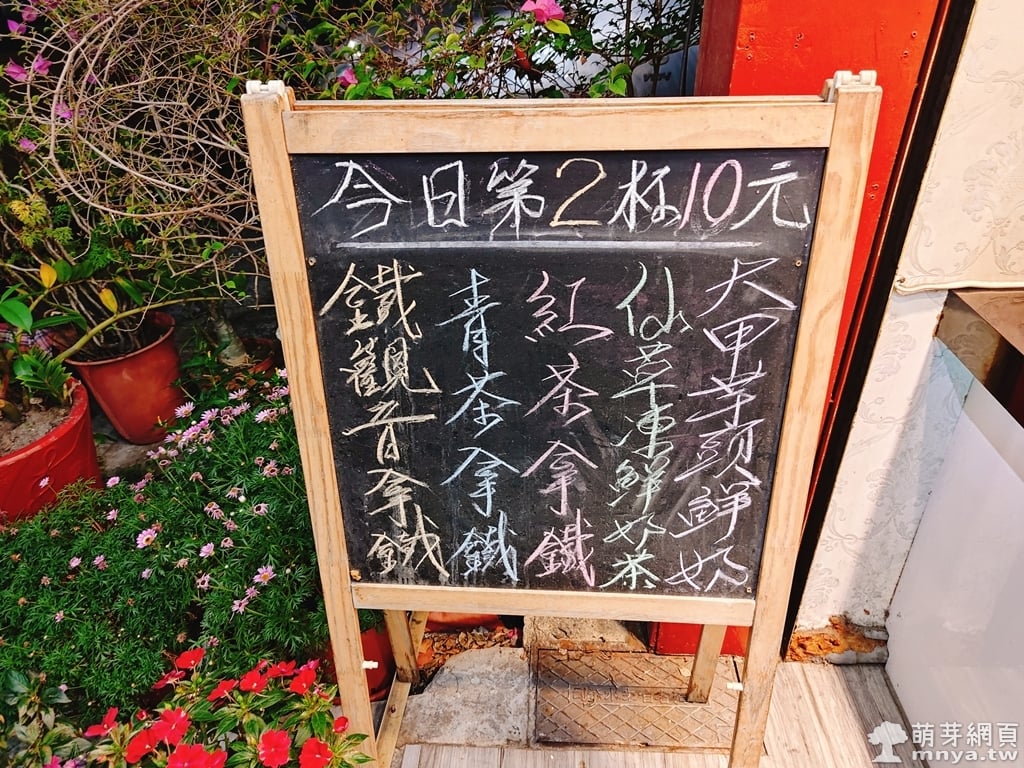 今日第2杯10元
大甲芋頭鮮奶
仙草凍鮮奶茶
紅茶拿鐵
青茶拿鐵
鐵觀音拿鐵
萌芽網頁
mnya.tw